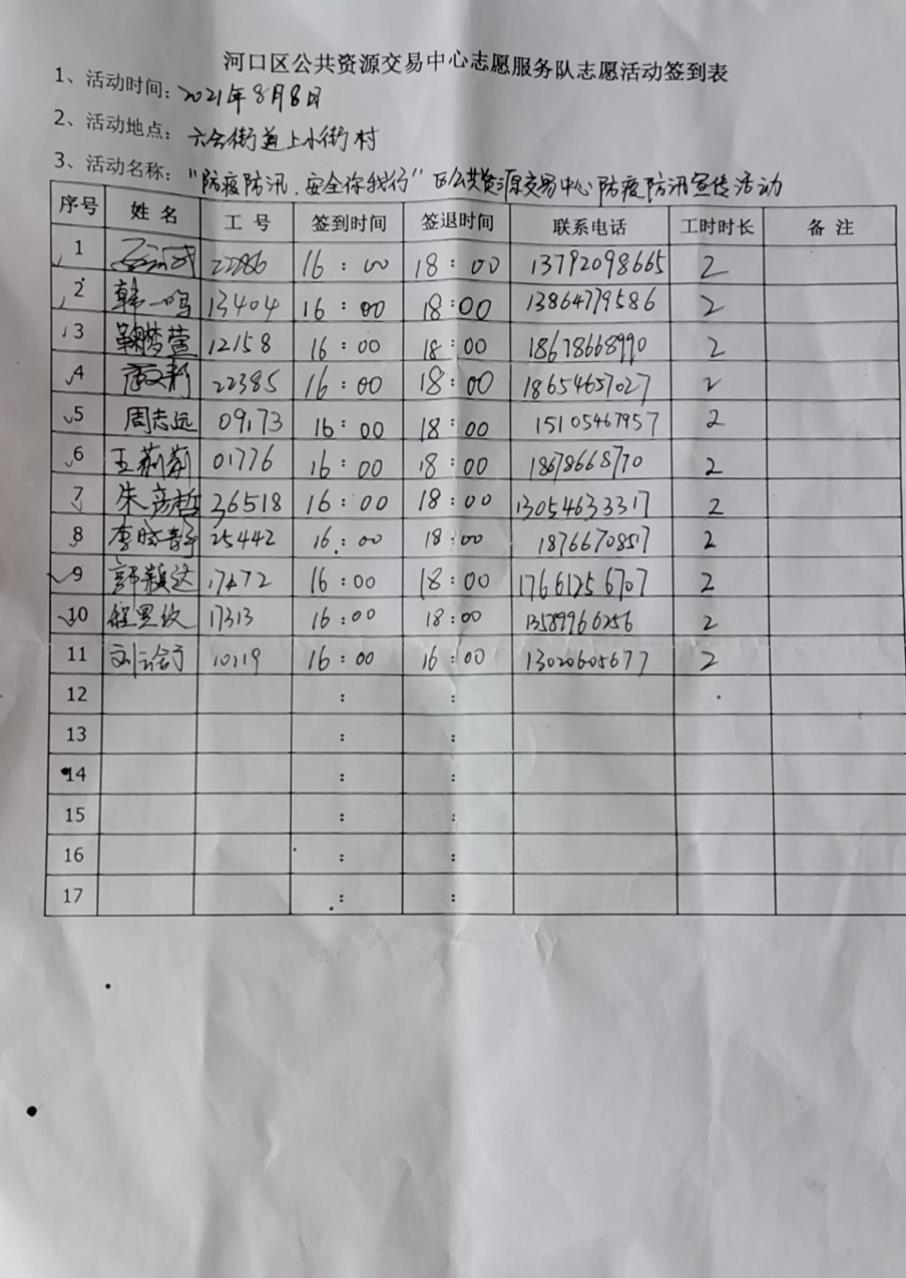 河口区公共资源交易中心志愿服务队志愿活动签到表
1、活动时间：2021年8月8日
2、活动地点：六合街道上小街村
3、活动名称："防疫防汛，安全你我行"区公共资源交易中心防疫防汛宣传活动
序号 姓名 工号 签到时间 签退时间 联系电话 工时时长 备注
1 22286 16：00 18：00 13792098665 2
2 韩一鸣 13404 16：00 18：00 13864779586 2
3 鞠梦萱 12158 16：00 18：00 18678668990 2
4 22385 16：00 18：00 18654657027 2
5 周志远 09173 16：00 18：00 15105467957 2
6 王莉莉 01776 16：00 18：00 18678668770 2
7 朱彦哲 36518 16：00 18：00 13054633317 2
8 李晓静 25442 16：00 18：00 18766708517 2
9 郭颖达 17472 16：00 18：00 17661256707 2
10 17313 16：00 18：00 13589966256 2
11 10119 16：00 16：00 13020605677 2
12 ： ：
13 ： ：
14 ： ：
15 ： ：
16 ： ：
17 ： ：